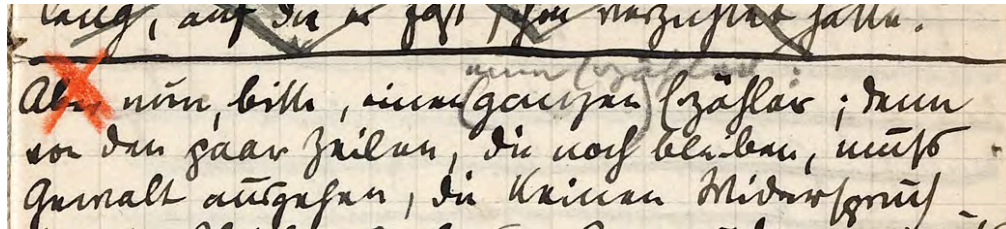 leuch, auf die er fast schon verzichtet hatte.
einen Erzähler:
Aber nun, bitte, einen (ganzen) Erzähler; denn
von den paar Zeilen, die noch bleiben, muß
Gewalt ausgehen, die keinen Widerspruch